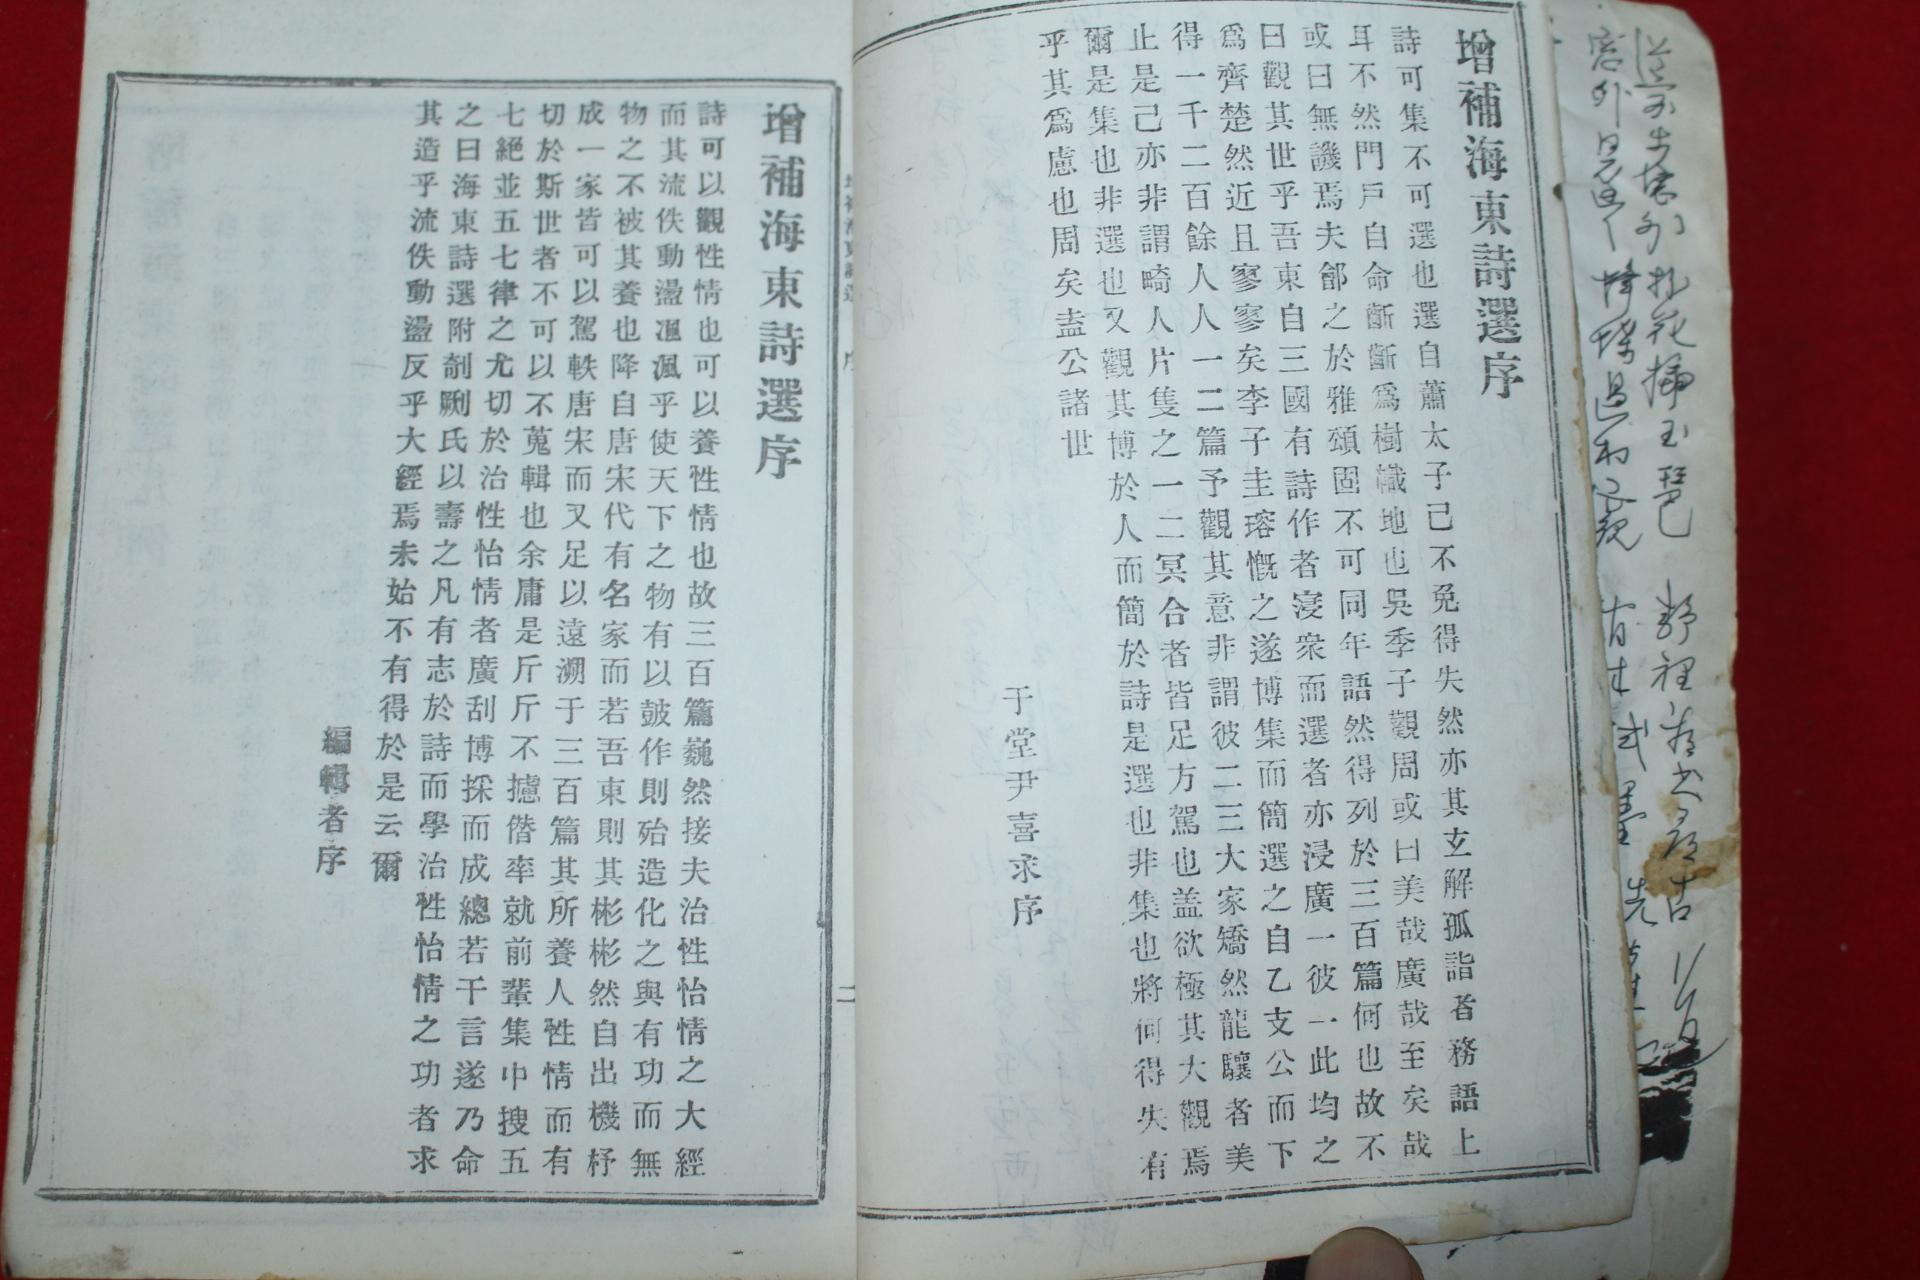 增補海東詩選序
詩可集不可選也選自蕭太子己不免得失然亦其玄解孤詣者務語上
耳不然門戶自命斷斷爲樹幟地也吳季子觀周或曰美哉廣哉至矣哉
或曰無譏焉夫鄶之於雅頌固不可同年語然得列於三百篇何也故不
曰觀其世乎吾東自三國有詩作者寖衆而選者亦浸廣一彼一此均之
爲齊楚然近且寥寥矣李子圭瑢慨之遂博集而簡選之自乙支公而下
得一千二百餘人人一二篇予觀其意非謂彼二三大家矯然龍驤者美
止是己亦非謂畸人片隻之一二冥合者皆足方駕也盖欲極其大觀焉
爾是集也非選也又觀其博於人而簡於詩是選也非集也將何得失有
乎其爲慮也周矣盍公諸世
于堂尹喜求序
增補海東詩選 序
二
增補海東詩選序
詩可以觀性情也可以養性情也故三百篇巍然接夫治性怡情之大經
而其流佚動盪渢渢乎使天下之物有以皷作則殆造化之與有功而無
物之不被其養也降自唐宋代有名家而若吾東則其彬彬然自出機杼
成一家皆可以駕軼唐宋而又足以遠溯于三百篇其所養人性情而有
切於斯世者不可以不蒐輯也余庸是斤斤不攄僭率就前輩集中搜五
七絕並五七律之尤切於治性怡情者廣刮博採而成總若干言遂乃命
之曰海東詩選附剞劂氏以壽之凡有志於詩而學治性怡情之功者求
其造乎流佚動盪反乎大經焉未始不有得於是云爾
編輯者序